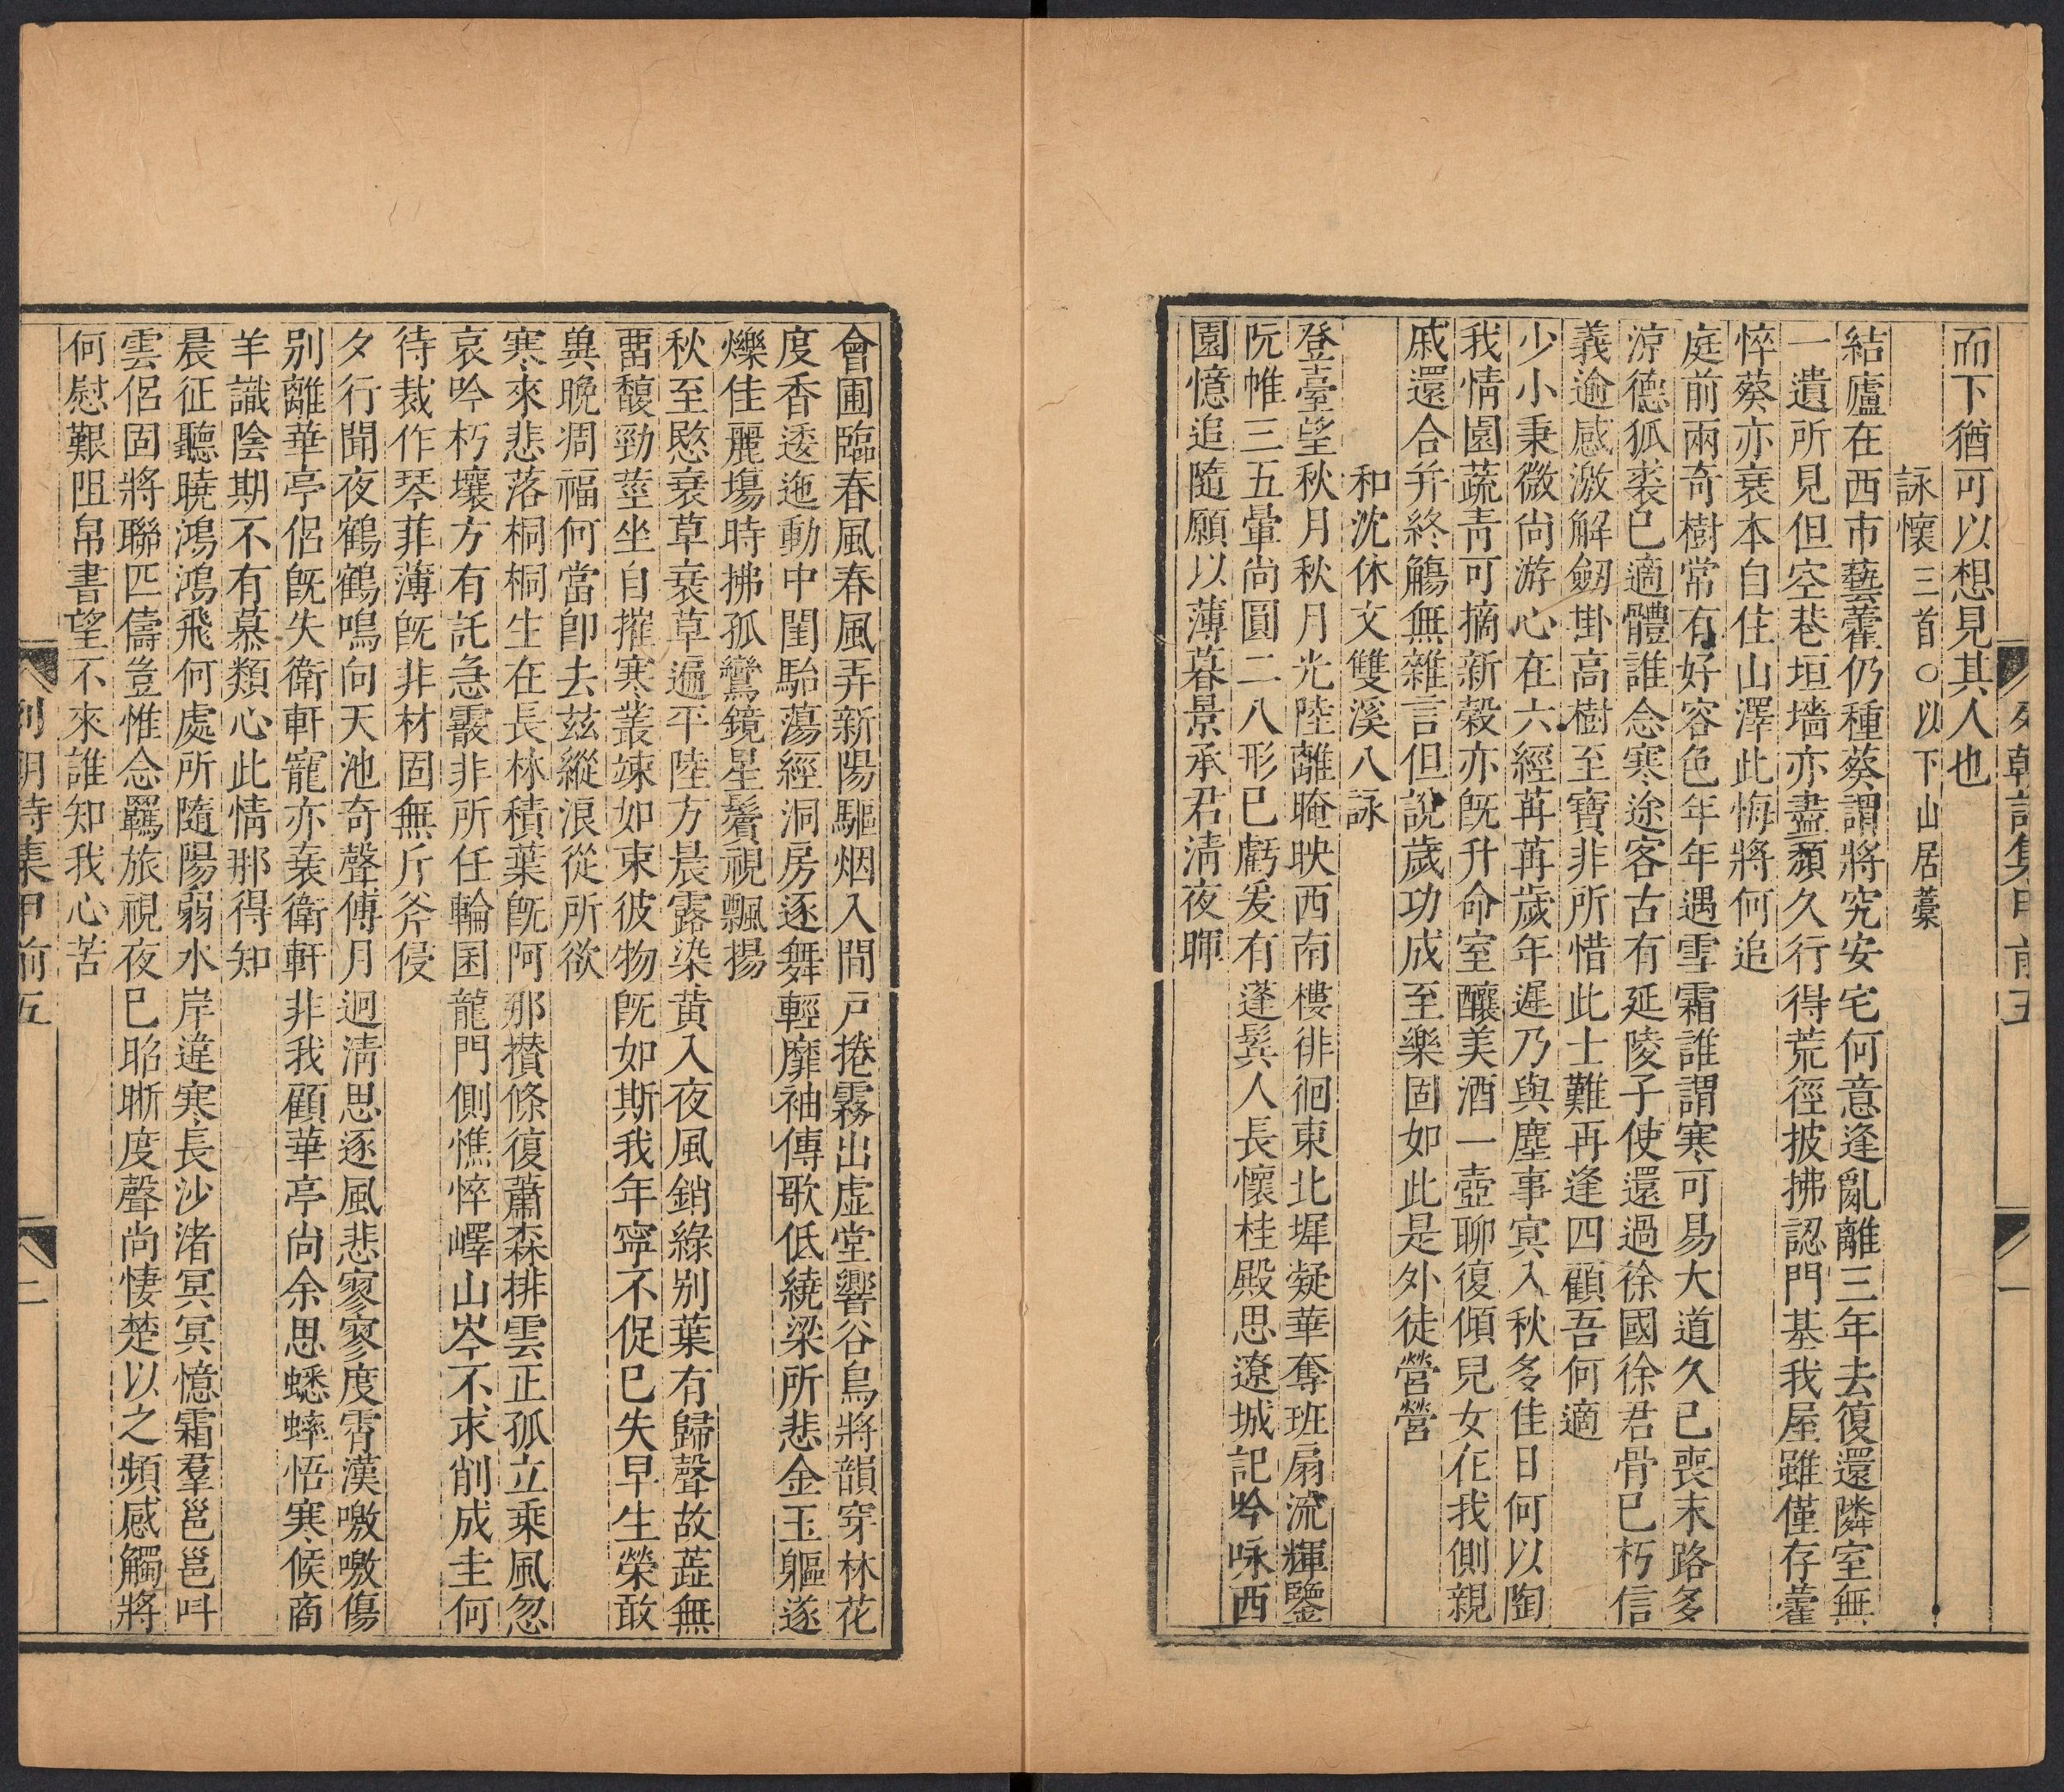 列朝詩集甲前五
一
而下猶可以想見其人也
詠懷三首○以下山居藁
結廬在西市藝藿仍種葵謂將究安宅何意逢亂離三年去復還隣室無
一遺所見但空巷垣墻亦盡頹久行得荒徑披拂認門基我屋雖僅存藿
悴葵亦衰本自住山澤此悔將何追
庭前兩奇樹常有好容色年年遇雪霜誰謂寒可易大道久已喪末路多
涼德狐裘已適體誰念寒途客古有延陵子使還過徐國徐君骨已朽信
義逾感激解劒掛高樹至寶非所惜此士難再逢四顧吾何適
少小秉微尚游心在六經苒苒歲年遲乃與塵事冥入秋多佳日何以陶
我情園蔬青可摘新榖亦旣升命室釀美酒一壺聊復傾兒女在我側親
戚還合幷終觴無雜言但說歲功成至樂固如此是外徒營營
和沈休文雙溪八詠
登臺望秋月秋月光陸離晻映西南樓徘徊東北墀凝華奪班扇流輝鑒
阮帷三五暈尚圓二八形已虧爰有蓬鬢人長懷桂殿思遼城記吟咏西
園憶追隨願以薄暮景承君淸夜暉
會圃臨春風春風弄新陽驅烟入間戶捲霧出虛堂響谷鳥將韻穿林花
度香逶迤動中閨駘蕩經洞房逐舞輕靡袖傳歌低繞梁所悲金玉軀遂
爍佳麗塲時拂孤鸞鏡星鬢視飄揚
秋至愍衰草衰草遍平陸方晨露染黄入夜風銷綠别葉有歸聲故蕋無
畱馥勁莖坐自摧寒叢竦如束彼物旣如斯我年寧不促已失早生榮敢
兾晚凋福何當卽去茲縱浪從所欲
寒來悲落桐桐生在長林積葉旣阿那攅條復蕭森排雲正孤立乘風忽
哀吟朽壤方有託急霰非所任輪囷龍門側憔悴嶧山岑不求削成圭何
待裁作琴菲薄旣非材固無斤斧侵
夕行聞夜鶴鶴鳴向天池奇聲傅月迥淸思逐風悲寥寥度霄漢嗷嗷傷
别離華亭侶旣失衛軒寵亦衰衛軒非我顧華亭尙余思蟋蟀悟寒候商
羊識陰期不有慕類心此情那得知
晨征聽曉鴻鴻飛何處所隨陽弱水岸違寒長沙渚冥冥憶霜羣嗈嗈呌
雲侶固將聯匹儔豈惟念羈旅視夜已昭晣度聲尙悽楚以之頻感觸將
何慰艱阻帛書望不來誰知我心苦
列朝詩集甲前五
二